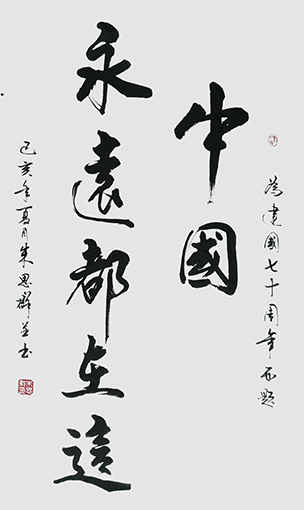 為建國七十周年而題
中國
永遠都在這
己亥年夏月朱思群並书